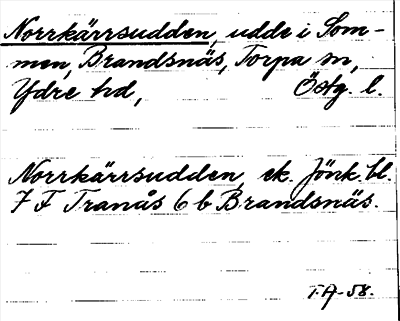 Norrkärrsudden, udde i Som-
men, Brandsnäs, Torpa sn,
Ydre hd, Östg. l.
Norrkärrsudden, ek. Jönk. bl.
7 F Tranås 6 b Brandsnäs.
T.A-58.